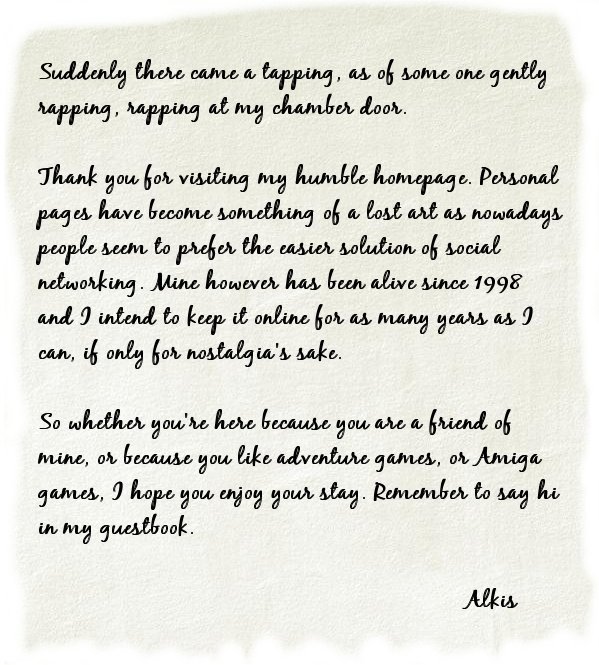 Suddenly there came a tapping, as of some one gently
rapping, rapping at my chamber door.
Thank you for visiting my humble homepage. Personal
pages have become something of a lost art as nowadays
people seem to prefer the easier solution of social
networking. Mine however has been alive since 1998
and I intend to keep it online for as many years as I
can, if only for nostalgia's sake.
So whether you're here because you are a friend of
mine, or because you like adventure games, or Amiga
games, I hope you enjoy your stay. Remember to say hi
in my guestbook.
Alkis